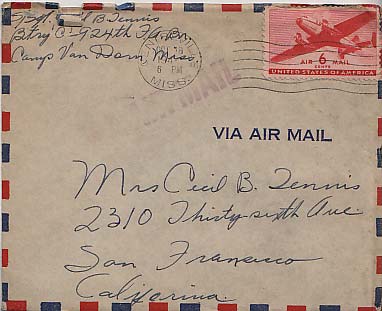 B Tennis
Btry C-924th F.A.Bn
Camp Van Dorn, Miss.
MISS.
6 PM
AIR 6 MAIL
CENTS
UNITED STATES OF AMERICA
AIR MAIL
VIA AIR MAIL
Mrs Cecil B. Tennis
2310 Thirty-sixth Ave.
San Francisco
California.